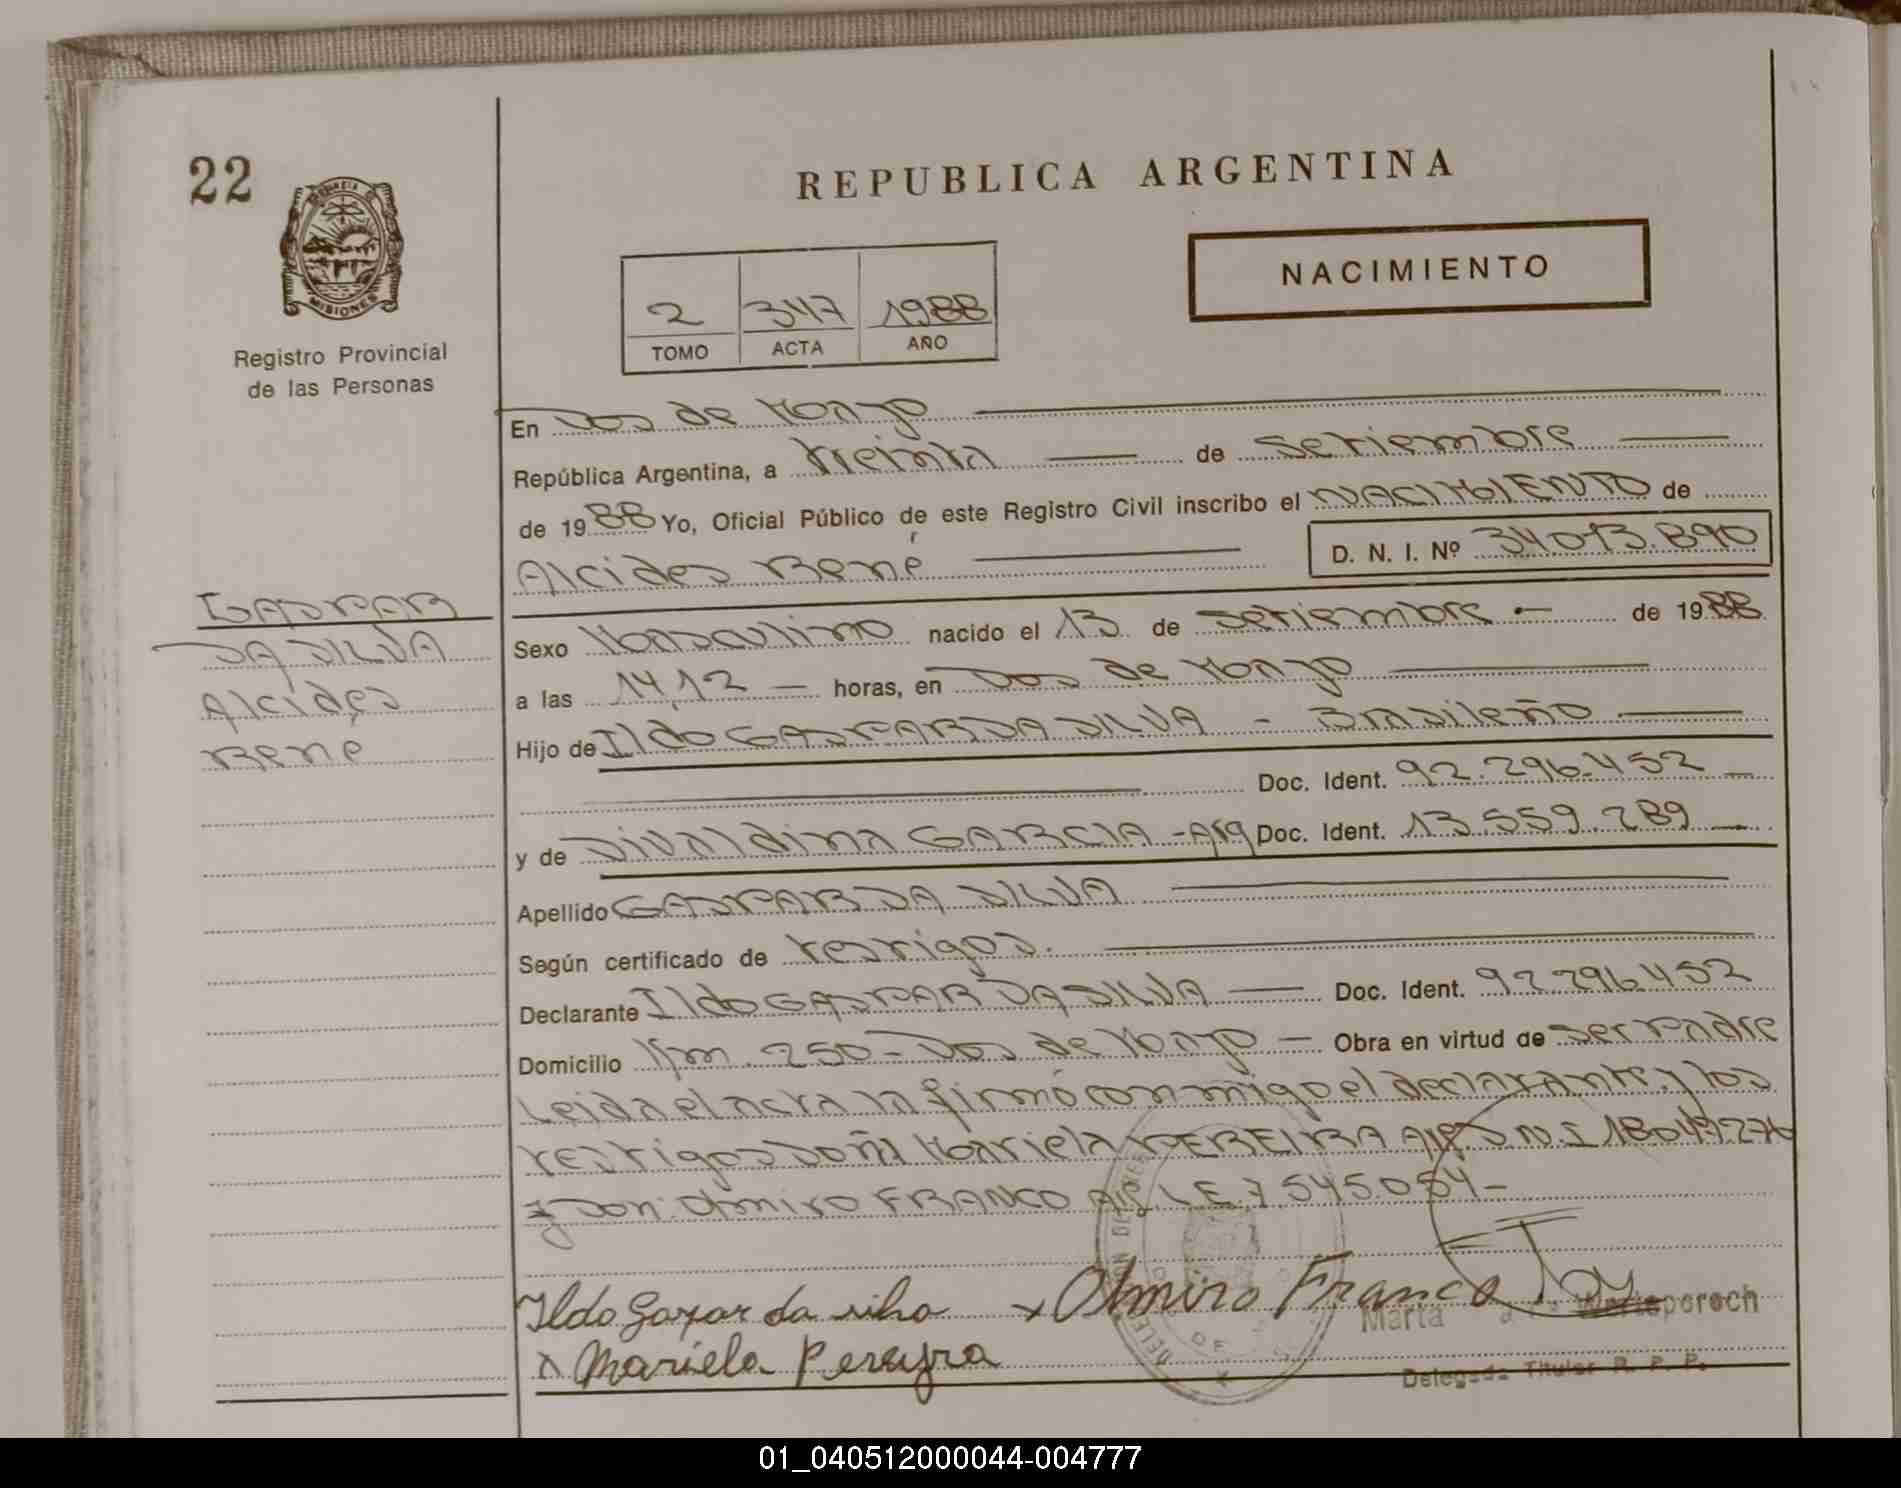 22
REPUBLICA ARGENTINA
PROVINCIA DE
MISIONES
Registro Provincial
de las Personas
NACIMIENTO
2 347 1988
TOMO ACTA AÑO
En Dos de Mayo
República Argentina, a treinta de setiembre
de 1988 Yo, Oficial Público de este Registro Civil inscribo el NACIMIENTO de
Alcides René D. N. I. Nº 34.013.890
GASPAR
DA SILVA
Alcides
René
Sexo Masculino nacido el 13 de setiembre de 1988
a las 14,12 horas, en Dos de Mayo
Hijo de Ildo GASPAR DA SILVA - Brasileño
Doc. Ident. 92.296.452
y de Divaldina GARCIA - Arg Doc. Ident. 13.559.289
Apellido GASPAR DA SILVA
Según certificado de testigos.
Declarante Ildo GASPAR DA SILVA Doc. Ident. 92.296.452
Domicilio Km. 250 - Dos de Mayo Obra en virtud de ser padre
Leida el acta la firmó conmigo el declarante y los
testigos Doña Mariela PEREIRA Arg D.N.I 18.049.276
y Don Olmiro FRANCO Arg. L.E. 7.545.054 -
Ildo Gaspar da silva x Olmiro Franco
Marta
x Mariela Pereyra
Delegada Titular R. P. P.
01_040512000044-004777